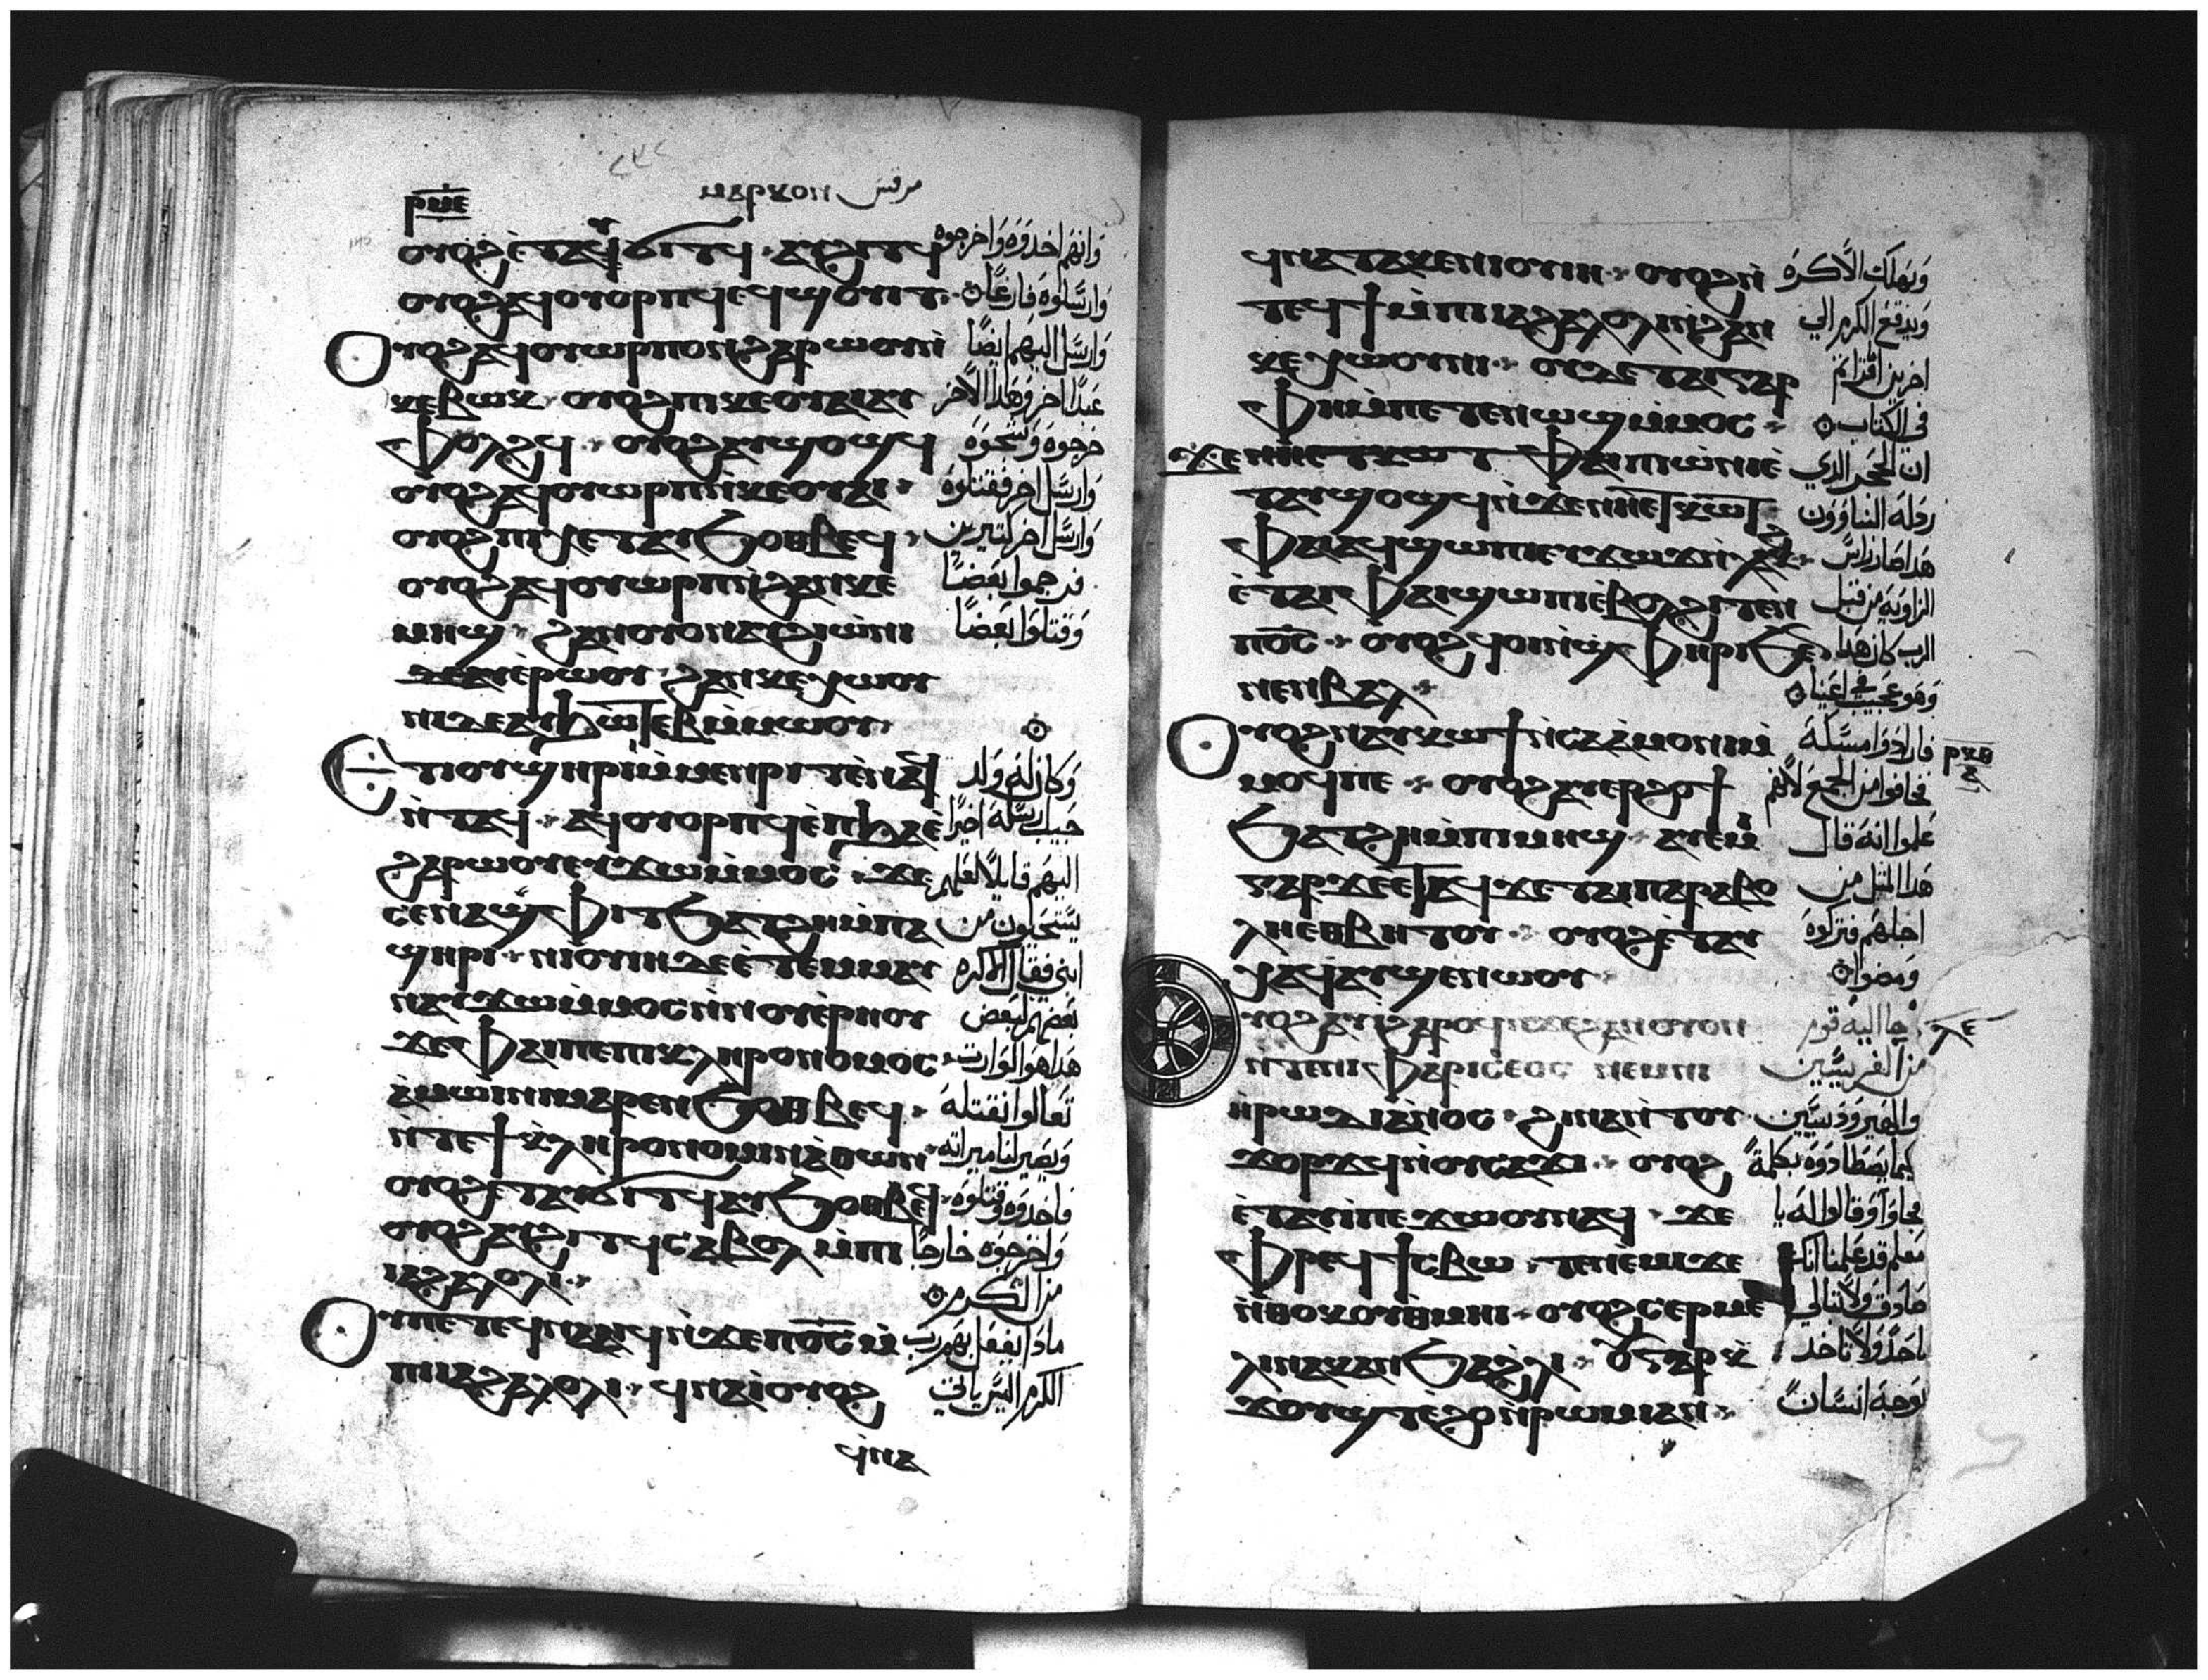 ⲣⲙⲉ ⲙⲁⲣⲕⲟⲛ مرقس
ⲟⲩⲟϩ ⲉ̀ⲧⲁⲩϭⲓⲧϥ ⲁⲩϩⲓⲧϥ وانهم اخدوه واخرجوه
ⲟⲩⲟϩ ⲁⲩⲟⲩⲟⲣⲡϥ ⲉϥϣⲟⲩⲓⲧ وارسلوه فارغا
ⲟⲩⲟϩ ⲁϥⲟⲩⲱⲣⲡ ⲟⲛ ϩⲁⲣⲱⲟⲩ ⲛ̀ وارسل اليهم ايضا
ⲕⲉⲃⲱⲕ ⲟⲩⲟϩ ⲡⲓⲕⲉⲟⲩⲁⲓ ⲁⲩ عبدا اخر وهدا الاخر
ⲫⲟⲗϩϥ ⲟⲩⲟϩ ⲁⲩϣⲟϣϥ جرحوه وشجوه
ⲟⲩⲟϩ ⲁϥⲟⲩⲱⲣⲡ ⲛ̀ⲕⲉⲟⲩⲁⲓ وارسل اخر فقتلوه
ⲟⲩⲟϩ ⲡⲓⲭⲉⲧ ⲁⲩϧⲟⲑⲃⲉϥ وارسل اخر كتيرين
ⲟⲩⲟϩ ⲁϥⲟⲩⲱⲣⲡ ⲛ̀ϩⲁⲛⲕⲉ فرجموا بعضا
ⲙⲏϣ ϩⲁⲛⲟⲩⲟⲛ ⲁⲩϩⲓⲱ̀ⲛⲓ وقتلوا بعضا
ⲉ̀ϫⲱⲟⲩ ϩⲁⲛⲕⲉⲭⲱⲟⲩ
ⲛⲓ ⲇⲉ ⲁⲩϧⲱⲧⲉⲃ ⲙ̀ⲙⲱⲟⲩ
ⲉⲧⲓ ⲟⲩϣⲏⲣⲓ ⲙ̀ⲙⲉⲛⲣⲓⲧ ⲉ̀ⲛⲁϥ وكان له ولد
ⲛ̀ⲧⲁϥ ⲁϥⲟⲩⲟⲣⲡϥ ⲉ̀ⲡϧⲁⲉ حبيب ارسله اخيرا
ϩⲁⲣⲱⲟⲩ ⲉϥϫⲱ ⲙ̀ⲙⲟⲥ ϫⲉ اليهم قايلا لعلهم
ⲥⲉⲛⲁϣⲫⲓⲧ ϧⲁⲧϩⲏ ⲙ̀ⲡⲁ يستحيون من
ϣⲏⲣⲓ ⲛⲓⲟⲩⲓⲏ ⲇⲉ ⲉ̀ⲧⲉⲙⲙⲁⲩ ابني فقال الاكره
ⲛⲁⲩϫⲱ ⲙ̀ⲙⲟⲥ ⲛ̀ⲛⲟⲩⲉ̀ⲣⲏⲟⲩ بعضهم لبعض
ϫⲉ ⲫⲁⲓ ⲡⲉ ⲡⲓⲕⲗⲏⲣⲟⲛⲟⲙⲟⲥ هدا هو الوارت
ⲁ̀ⲙⲱⲓⲛⲓ ⲙⲁⲣⲉⲛϧⲟⲑⲃⲉϥ تعالوا نقتله
ⲛⲧⲉϯⲕⲗⲏⲣⲟⲛⲟⲙⲓⲁ̀ ⲑⲱⲛ ويصير لنا ميراته
ⲟⲩⲟϩ ⲉⲧⲁⲩϭⲓⲧϥ ⲁⲩϧⲟⲑⲃⲉϥ فاخدوه وقتلوه
ⲟⲩⲟϩ ⲁⲩϩⲓⲧϥ ⲥⲁⲃⲟⲗ ⲙ̀ⲡⲓ واخرجوه خارجا
ⲓⲁϩⲁⲗⲟⲗⲓ من الكرم
ⲟⲩ ⲡⲉⲧⲉϥⲛⲁⲁⲓϥ ⲛ̀ϫⲉ ⲡⲟ̅ⲥ̅ ⲙ̀ مادا يفعل بهم رب
ⲡⲓⲓⲁϩⲁⲗⲟⲗⲓ ϥⲛⲁⲓ̀ ⲟⲩⲟϩ الكرم اليس ياتي
ϥⲛⲁ
ϥⲛⲁⲧⲁⲕⲉ ⲛⲓⲟⲩⲓⲏ ⲟⲩⲟϩ ⲛ̀ ويهلك الاكره
ⲧⲉϥϯ ⲙ̀ⲡⲓⲓⲁϩⲁⲗⲟⲗⲓ ⲛ̀ϩⲁⲛ ويدفع الكرم الي
ⲕⲉⲭⲱⲟⲩⲛⲓ ⲟⲩⲇⲉ ⲧⲁⲓⲅⲣ اخرين
ⲫⲏ ⲙ̀ⲡⲉⲧⲉⲛⲱϣ ⲙ̀ⲙⲟⲥ في الكتاب
ⲫⲁⲓ ⲡⲓⲱ̀ⲛⲓ ⲉ̀ ان الحجر الدي
ⲧⲁⲩϣⲟϣϥ ⲛ̀ϫⲉ ⲛⲏⲉⲧⲕⲱⲧ ردله البناوون
ⲫⲁⲓ ⲁϥϣⲱⲡⲓ ⲉⲩϫⲱϫ ⲛ̀ⲗⲕϩ هدا صار راس
ⲉ̀ⲧⲁ ⲫⲁⲓ ϣⲱⲡⲓ ⲉ̀ⲃⲟⲗ ϩⲓⲧⲉⲛ الزاويه من قبل
ⲡⲟ̅ⲥ̅ ⲟⲩⲟϩ ϥⲟⲓ ⲛ̀ϣⲫⲏⲣⲓ ϧⲉⲛ الرب كان هدا
ⲛⲉⲛⲃⲁⲗ وهو عجيب في اعيننا
ⲟⲩⲟϩ ⲛⲁⲩⲕⲱϯ ⲛ̀ⲥⲁ ⲁ̀ⲙⲟⲛⲓ ⲙ̀ فارادوا مسكه
ⲙⲟϥ ⲡⲉ ⲟⲩⲟϩ ⲁⲩⲉⲣϩⲟϯ فخافوا من الجمع لانهم
ϧⲁⲧϩⲏ ⲙ̀ⲡⲓⲙⲏϣ ⲁⲩⲉⲙⲓ علموا انه قال
ⲅⲁⲣ ϫⲉ ⲉⲧⲁϥϫⲉ ⲧⲁⲓⲡⲁⲣⲁⲃⲟ هدا المتل من
ⲗⲏ ⲉⲑⲃⲏⲧⲟⲩ ⲟⲩⲟϩ ⲉ̀ⲧⲁⲩ اجلهم فتركوه
ⲭⲁϥ ⲁⲩϣⲉⲛⲱⲟⲩ ومضوا
ⲟⲩⲟϩ ⲁⲩⲓ̀ ϩⲁⲣⲟϥ ⲛ̀ϫⲉ ϩⲁⲛⲟⲩⲟⲛ جا اليه قوم
ⲛ̀ⲧⲉ ⲛⲓⲫⲁⲣⲓⲥⲉⲟⲥ ⲛⲉⲙ ⲛⲓ من الفريسيين
ⲏ̀ⲣⲱⲇⲓⲁⲛⲟⲥ ϩⲓⲛⲁ ⲛ̀ⲧⲟⲩ والهيرودسيين
ϫⲟⲣϫϥ ⲛ̀ⲟⲩⲥⲁϫⲓ ⲟⲩⲟϩ كيما يصطادوه بكلمة
ⲉ̀ⲧⲁⲩⲓ̀ ⲡⲉϫⲱⲟⲩ ⲛⲁϥ ϫⲉ فجاوا وقالوا له يا
ⲫⲣⲉϥϯⲥⲃⲱ ⲧⲉⲛⲉ̀ⲙⲓ ϫⲉ معلم قد علمنا انك
ⲛ̀ⲑⲟⲕ ⲟⲩⲑⲙⲏⲓ ⲟⲩⲟϩ ⲥⲉⲣⲙⲉ صادق ولا تبالي
ⲗⲓⲛ ⲛⲁⲕ ⲁⲛ ϧⲁ ϩⲗⲓ ⲟⲩ ⲅⲁⲣ ⲕ̀ باحد ولا تاخد
ϫⲟⲩϣⲧ ⲉ̀ϩⲟ ⲛ̀ⲣⲱⲙⲓ ⲁⲛ بوجه انسان